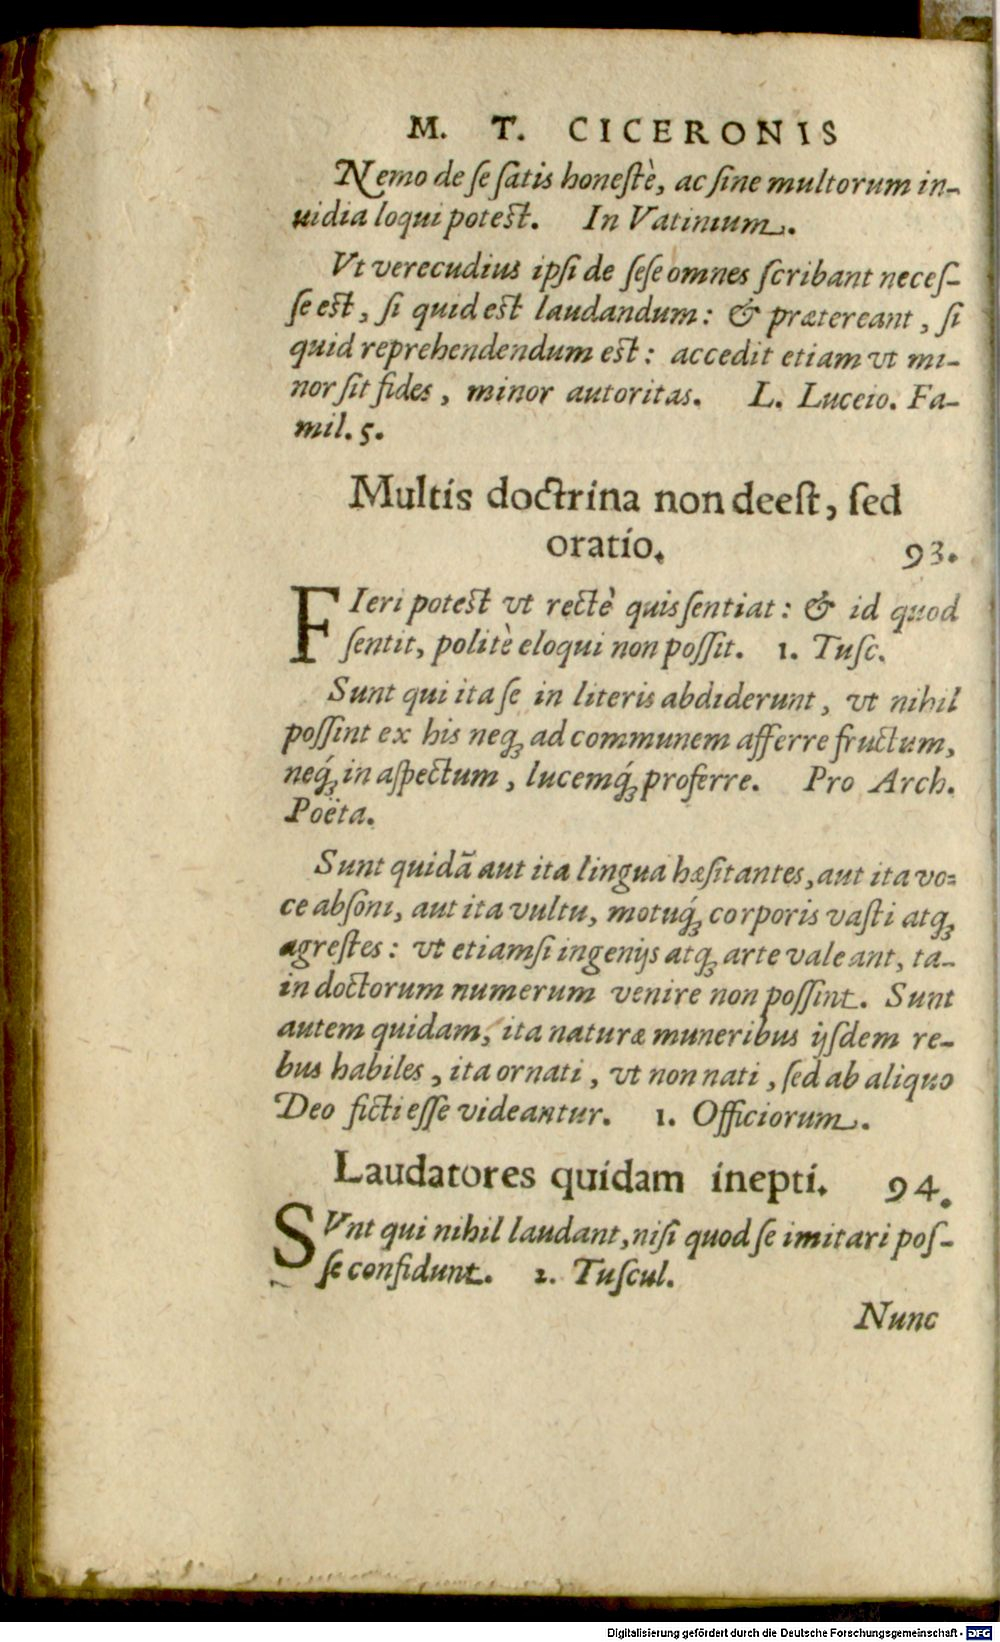 M. T. CICERONIS
Nemo de se satis honestè, ac sine multorum in-
uidia loqui potest. In Vatinium.
Vt verecudius ipsi de sese omnes scribant neces-
se est, si quid est laudandum: & prætereant, si
quid reprehendendum est: accedit etiam vt mi-
nor sit fides, minor autoritas. L. Luceio. Fa-
mil. 5.
Multis doctrina non deest, sed
oratio. 93.
FIeri potest vt rectè quis sentiat: & id quod
sentit, politè eloqui non possit. 1. Tusc.
Sunt qui ita se in literis abdiderunt, vt nihil
possint ex his neqꝫ ad communem afferre fructum,
neq́ꝫ in aspectum, lucemq́ꝫ proferre. Pro Arch.
Poëta.
Sunt quidã aut ita lingua hæsitantes, aut ita vo=
ce absoni, aut ita vultu, motuq́ꝫ corporis vasti atqꝫ
agrestes: vt etiamsi ingenijs atqꝫ arte valeant, ta-
in doctorum numerum venire non possint. Sunt
autem quidam, ita naturæ muneribus ijsdem re-
bus habiles, ita ornati, vt non nati, sed ab aliquo
Deo ficti esse videantur. 1. Officiorum.
Laudatores quidam inepti. 94.
SVnt qui nihil laudant, nisi quod se imitari pos-
se confidunt. 2. Tuscul.
Nunc
Digitalisierung gefördert durch die Deutsche Forschungsgemeinschaft - DFG